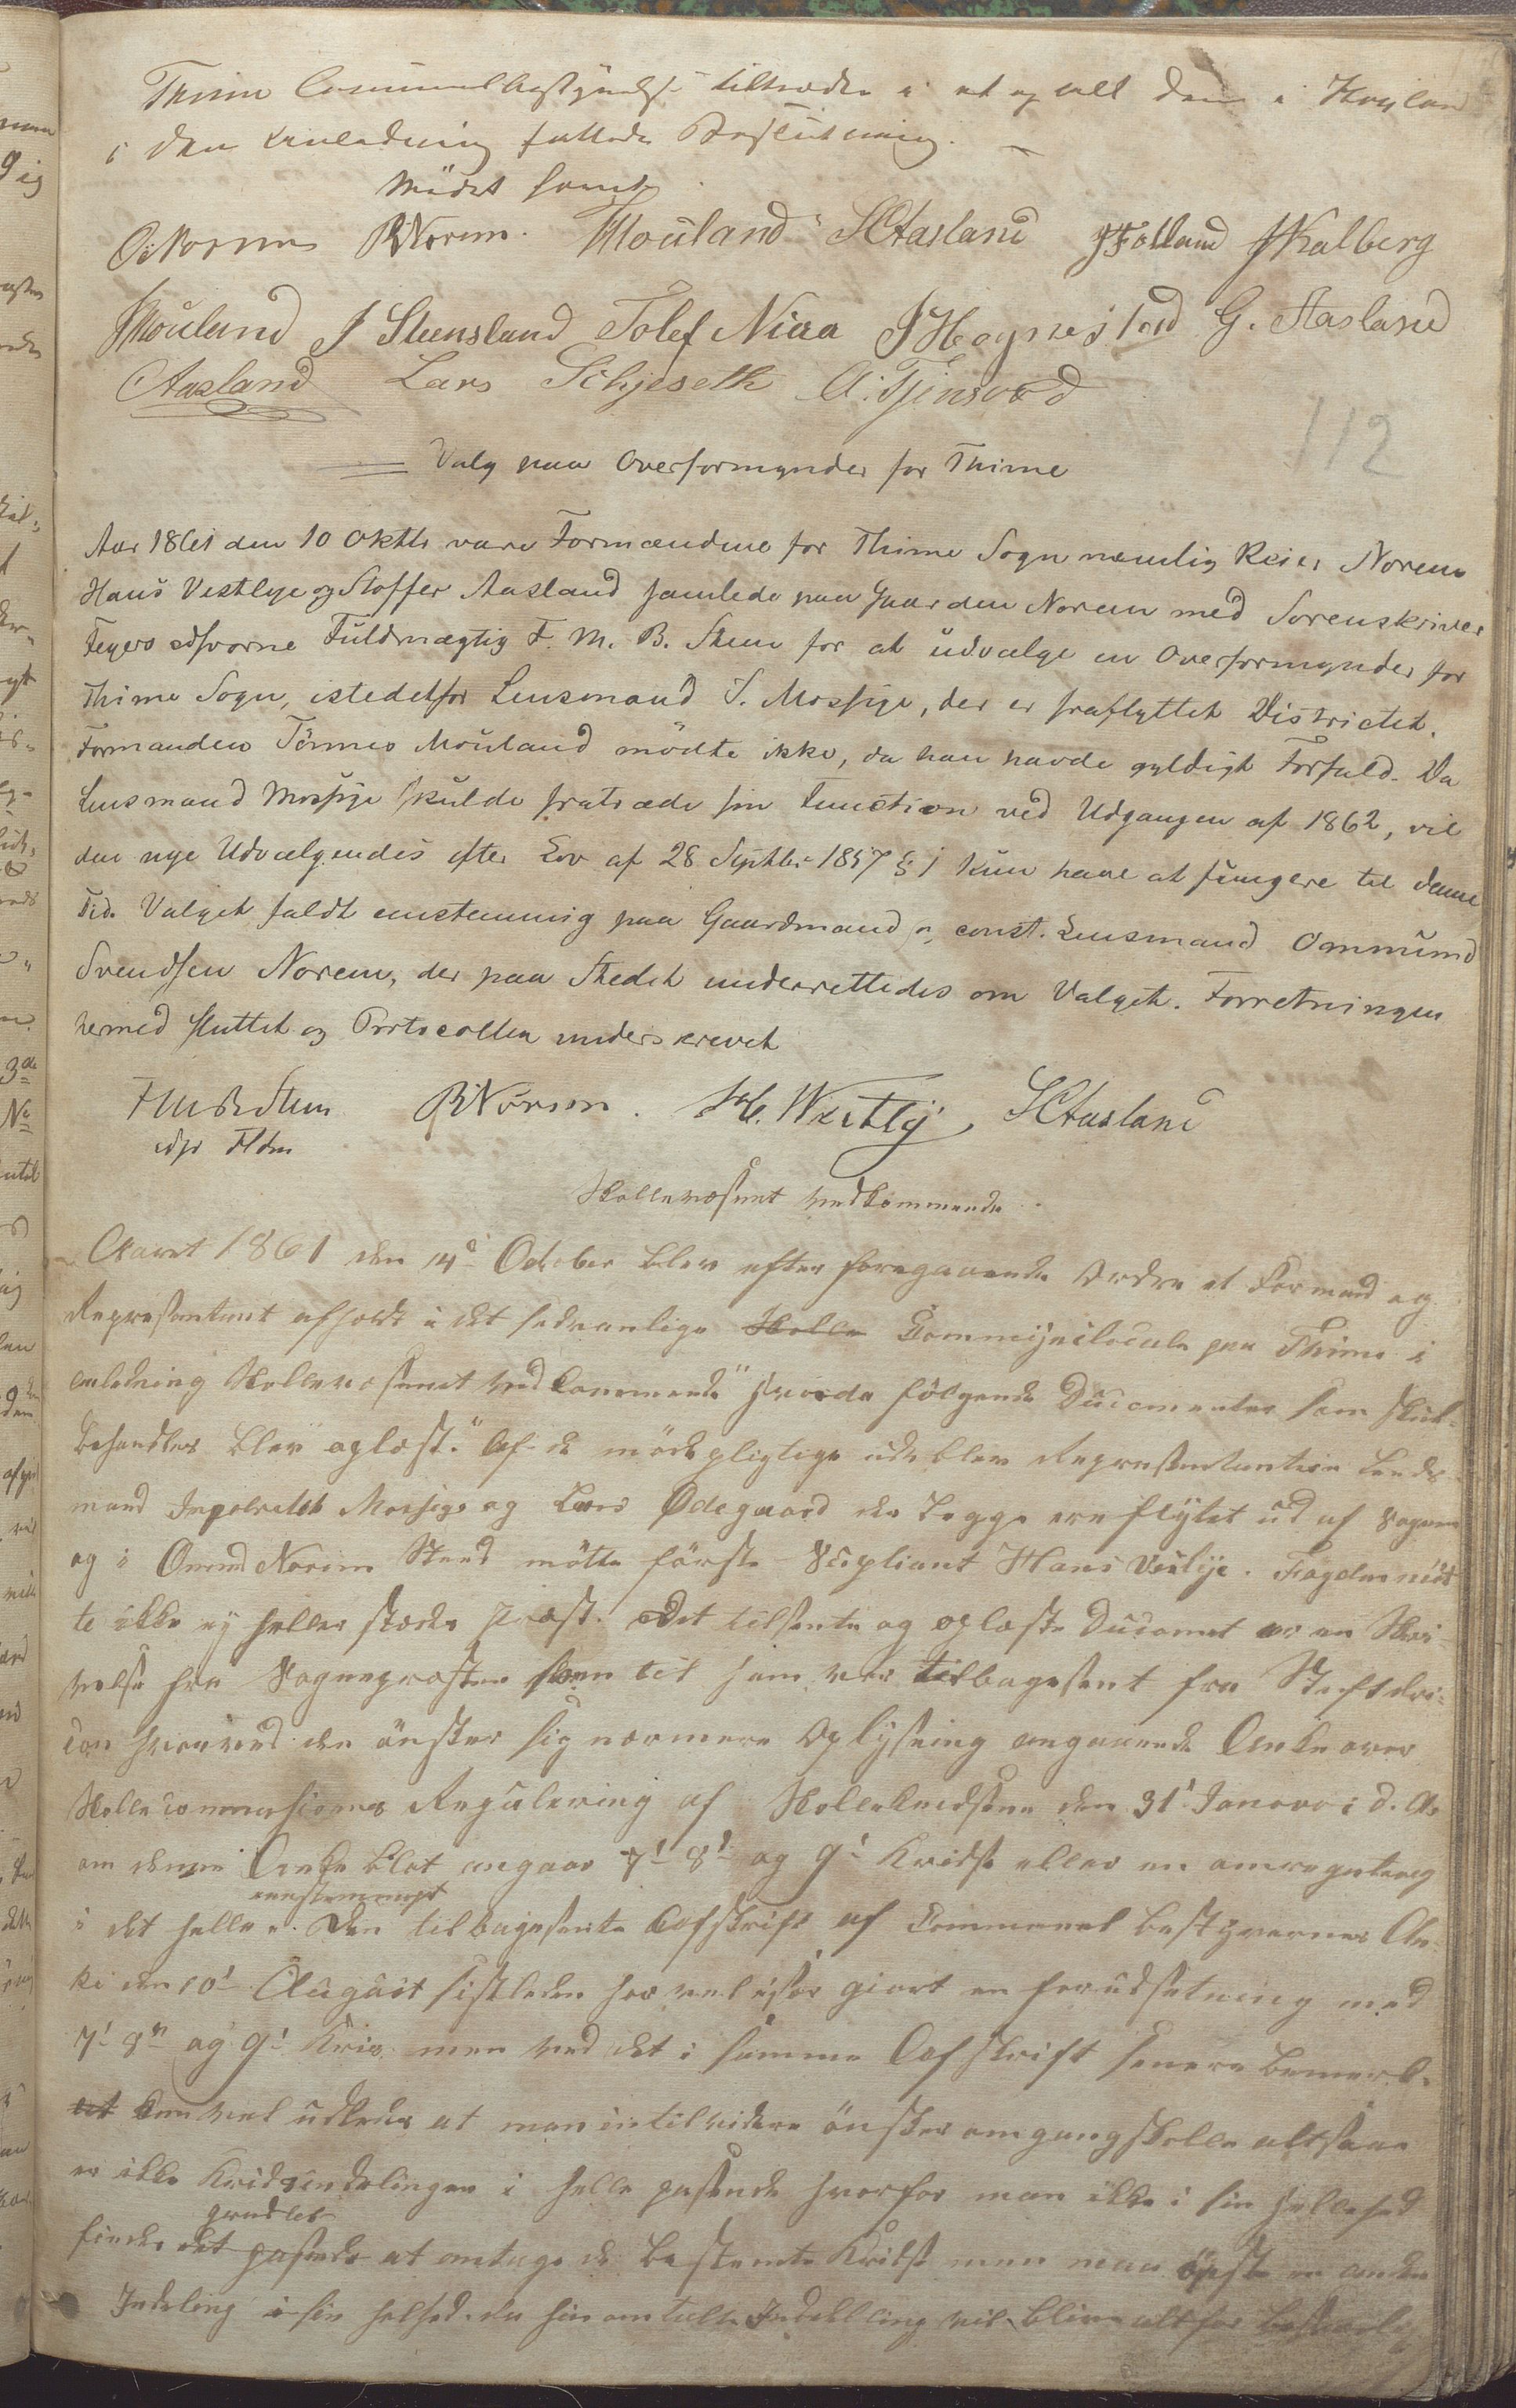 Thime Communalbestyrelse tiltræder i et og alt den i Høyland
i den Anledning fattede Beslutning. —
Mødet hævet
O. Norem R Norem. T Mouland S C Aasland J Folland J Kalberg
J Mouland J Steensland Tolef Niaa J Hognestad G. Aasland
Aasland Lars Schjeseth A. Tjensvold
112
Valg paa Overformynder for Thime
Aar 1861 den 10 Oktbr vare Formændene for Thime Sogn nemlig Reier Norem
Hans Vestlye og Stoffer Aasland samlede paa Gaarden Norem med Sorenskriver
Feyers edsvorne Fuldmægtig F. M. B. Steen for at udvælge en Overformynder for
Thime Sogn, istedetfor Lensmand T. Mossige, der er fraflyttet Districtet.
Formanden Tönnes Mouland mödte ikke, da han havde gyldigt Forfald. Da
Lensmand Mossige skulde fratræde sin Function ved Udgangen af 1862, vil
den nye Udvælgendes efter Lov af 28 Septbr 1857 § 1 kun have at fungere til denne
Tid. Valget faldt enstemmig paa Gaardmand og const. Lensmand Ommund
Svendsen Norem, der paa Stedet underrettedes om Valget. Forretningen
hermed sluttet og Protocollen underskrevet
F M B Steen R Norem. H. Westly S C Aasland
edsv Fldm
Skollevæsenet vedkommende
Aaret 1861 den 14de October blev efter foregaaende Ordre et Formand og
Represantmt afholdt i det sedvanlige Skolle Commisjelocale paa Thime i
anledning Skollevæsenet vedkommende" hvorda fölgende Ducomenter som skul-
behandles blev oplæst." Af de mödepligtige udeblev Represententerne Lends-
mand Ingebrettt Mossige og Lars Ødegaard da begge ere flyttet ud af Sognene
og i Omund Norems Sted mötte förste Supliant Hans Vestlye. Fogden möt-
te ikke ej heller stedets Præst. Det tilsente og oplæste Ducoment er en Skri-
velse fra Sognepræsten som til ham var tilbagesent fra Stiftdri-
con hvorved den önsker sig nærmere Oplysning angaaende Anke over
Skollecommisionens Regulering af Skollekredsene den 31' Januar i d. A.
om denne Anke blot angaar 7' 8' og 9' Kreds eller en omregulering
i det helle. Den eenstemmigt tilbagesente Afskrift af Communalbestyrernes An-
ke den 10' August sistleden har vel især giort en forudsetning med
7' 8' og 9' Kreds men ved det i samme Afskrift senere bemerk-
et kan vel udledes at man intilvidere önsker omgangskolle altsaa
er ikke Kredsindelingen i helle pasende hvorfor man ikke i sin hellehed
grundlet
finder det pasende at antage de bestemte Kreds men man önsker en anden
Indeling i sin helhed da hin omtalte Indelling vil blive altfor besværlig